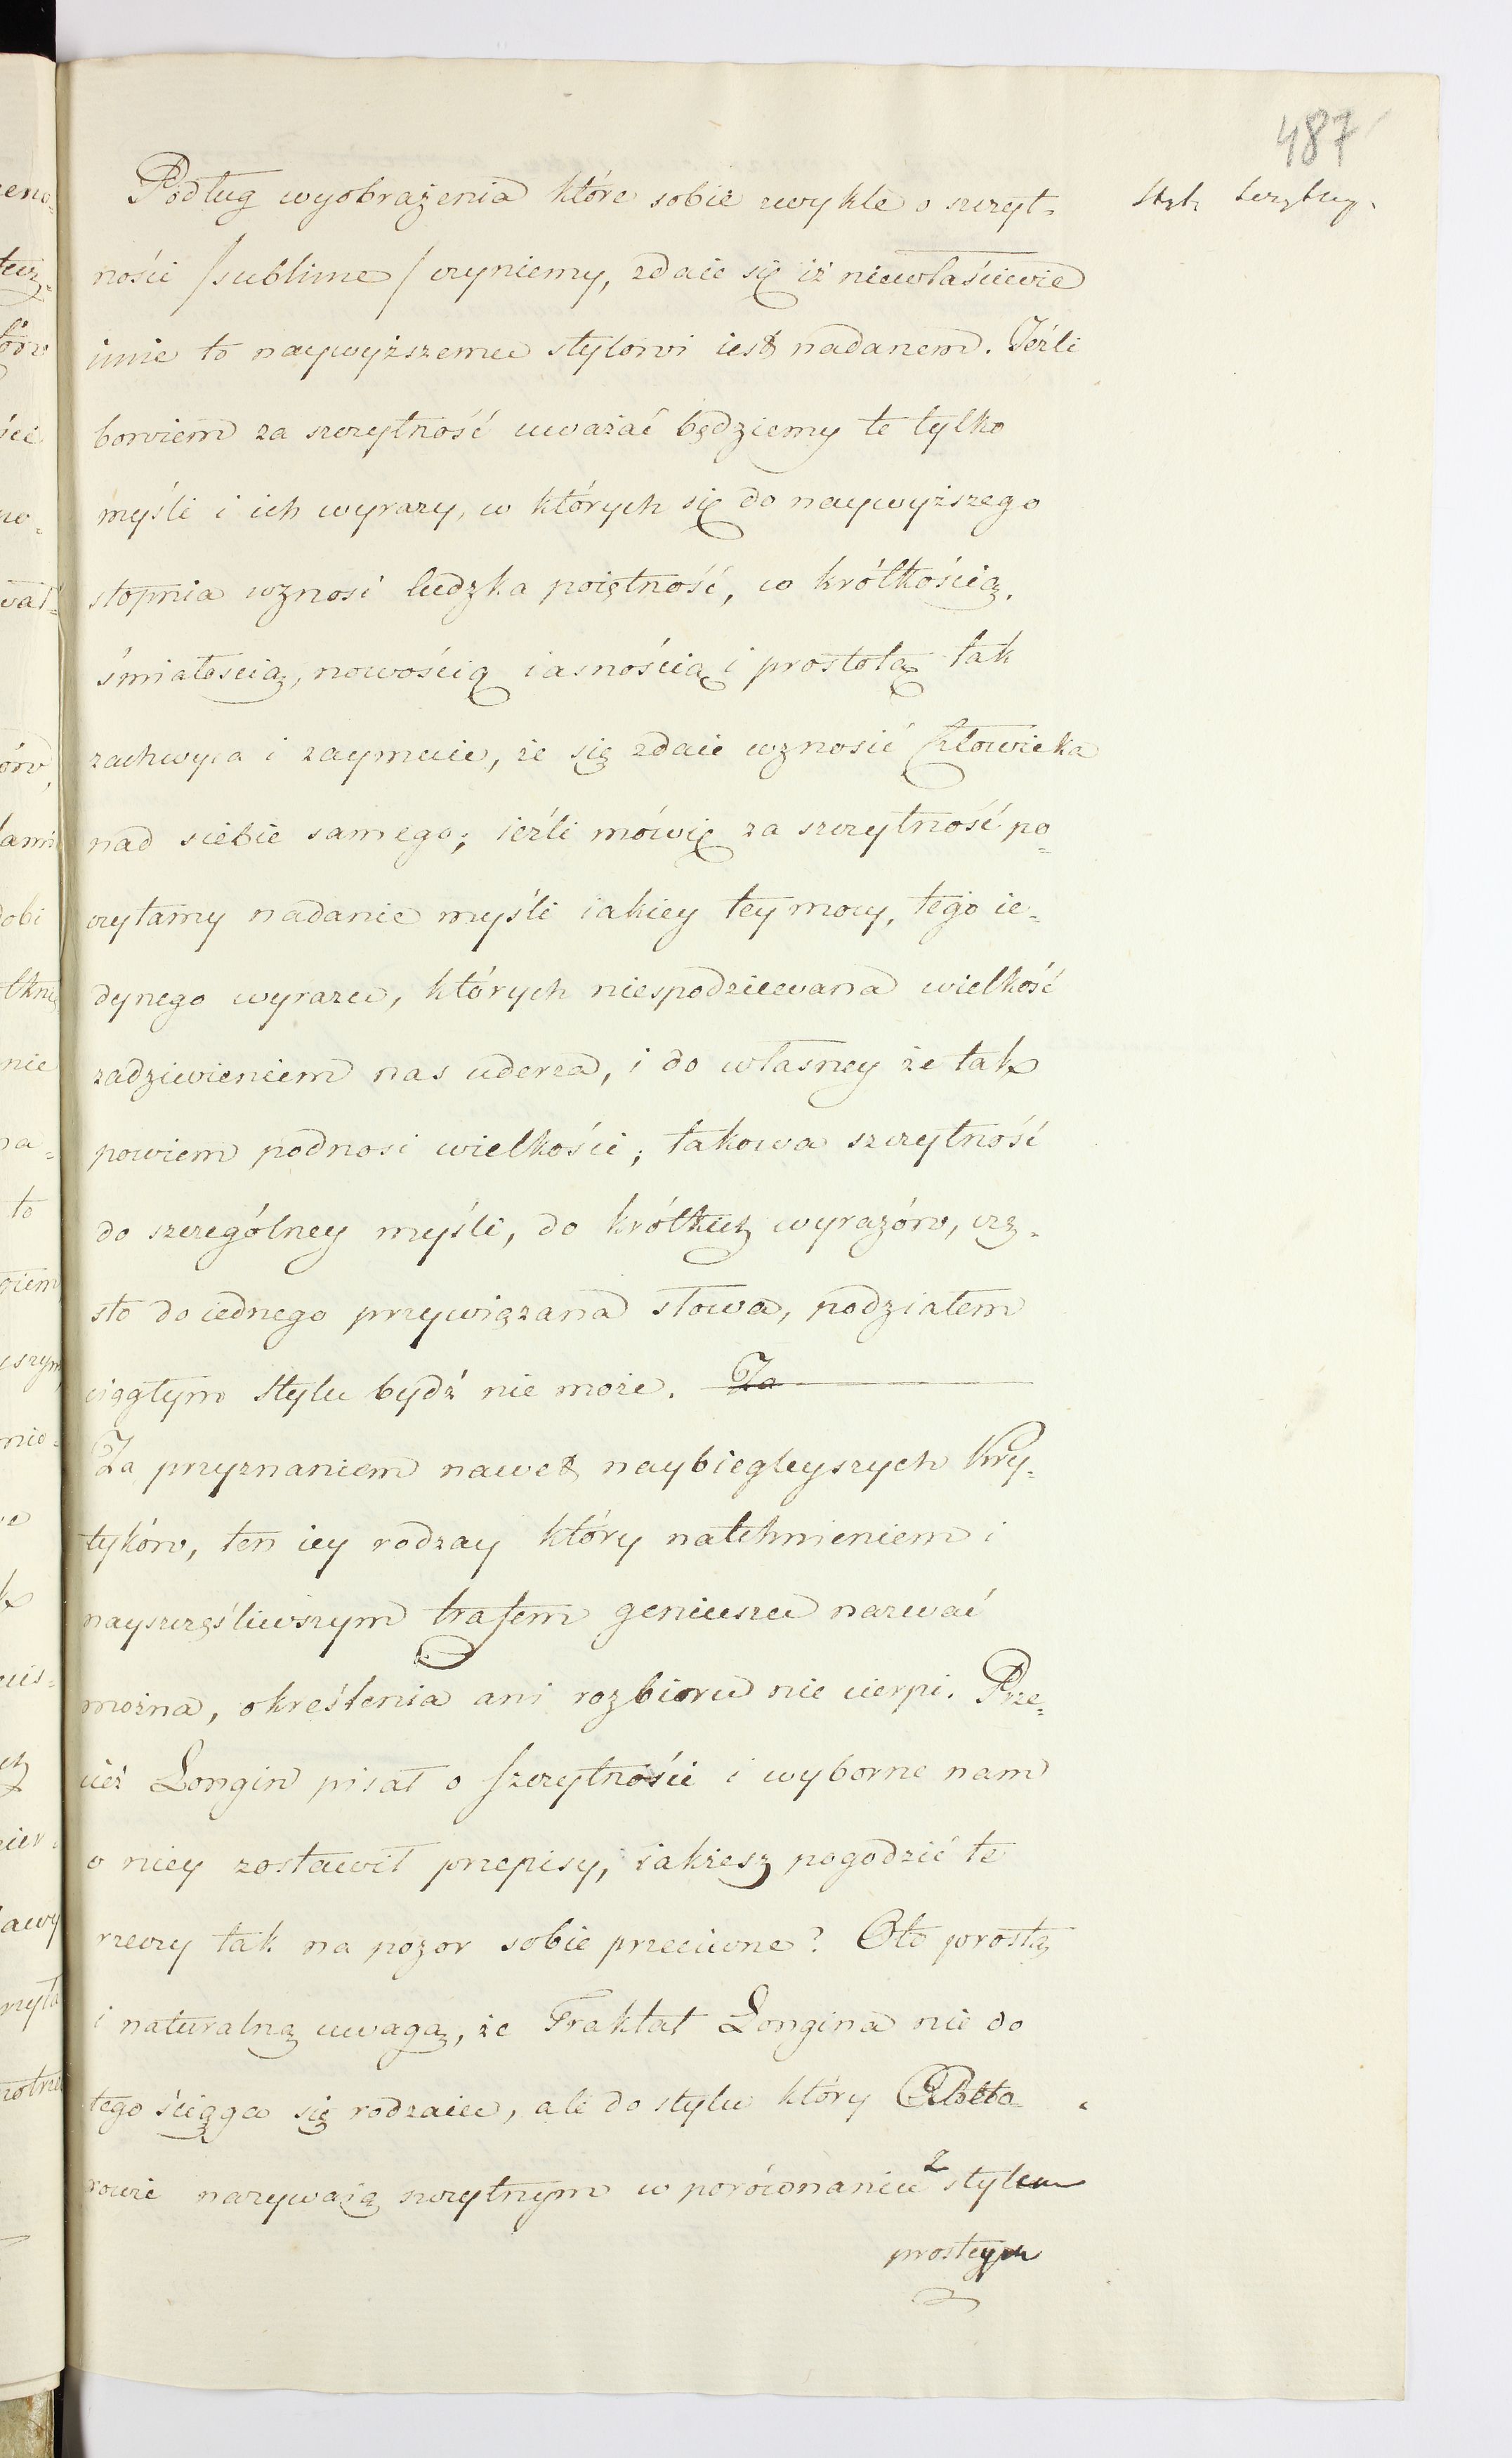 487
Podług wyobrażenia które sobie zwykle o szczyt-
Styl szczytny.
ności /sublime/ czyniemy, zdaie się iż niewłaściwie
imie to naywyższemu stylowi iest nadanem. Jeźli
bowiem za szczytność uważać będziemy te tylko
myśli i ich wyrazy, w których się do naywyższego
stopnia wznosi ludzka poiętność, co krótkością,
śmiałością, nowością iasnością i prostotą tak
zachwyca i zaymuie, że się zdaie wznosić Człowieka
nad siebie samego; ieźli mówię za szczytność po=
czytamy nadanie myśli iakiey tey mocy, tego ie=
dynego wyrazu, których niespodziewana wielkość
zadziwieniem nas uderza, i do własney że tak
powiem podnosi wielkości; takowa szczytność
do szczególney myśli, do krótkich wyrazów, czę-
sto do iednego przywiązana słowa, podziałem
ciągłym stylu bydź nie może. Za
Za przyznaniem nawet naybiegleyszych Kry=
tyków, ten iey rodzay który natchnieniem i
nayszczęśliwszym trafem geniuszu nazwać
można, określenia ani rozbioru nie cierpi. Prze=
cież Longin pisał o Szczytności i wyborne nam
o niey zostawił przepisy; iakżesz pogodzić te
rzeczy tak na pozor sobie przeciwne? Oto prostą
i naturalną uwagą, że Traktat Longina nie do
tego ściąga się rodzaiu, ale do stylu który Rheto-
rowie nazywaią szczytnym w porównaniu z stylem
prostym